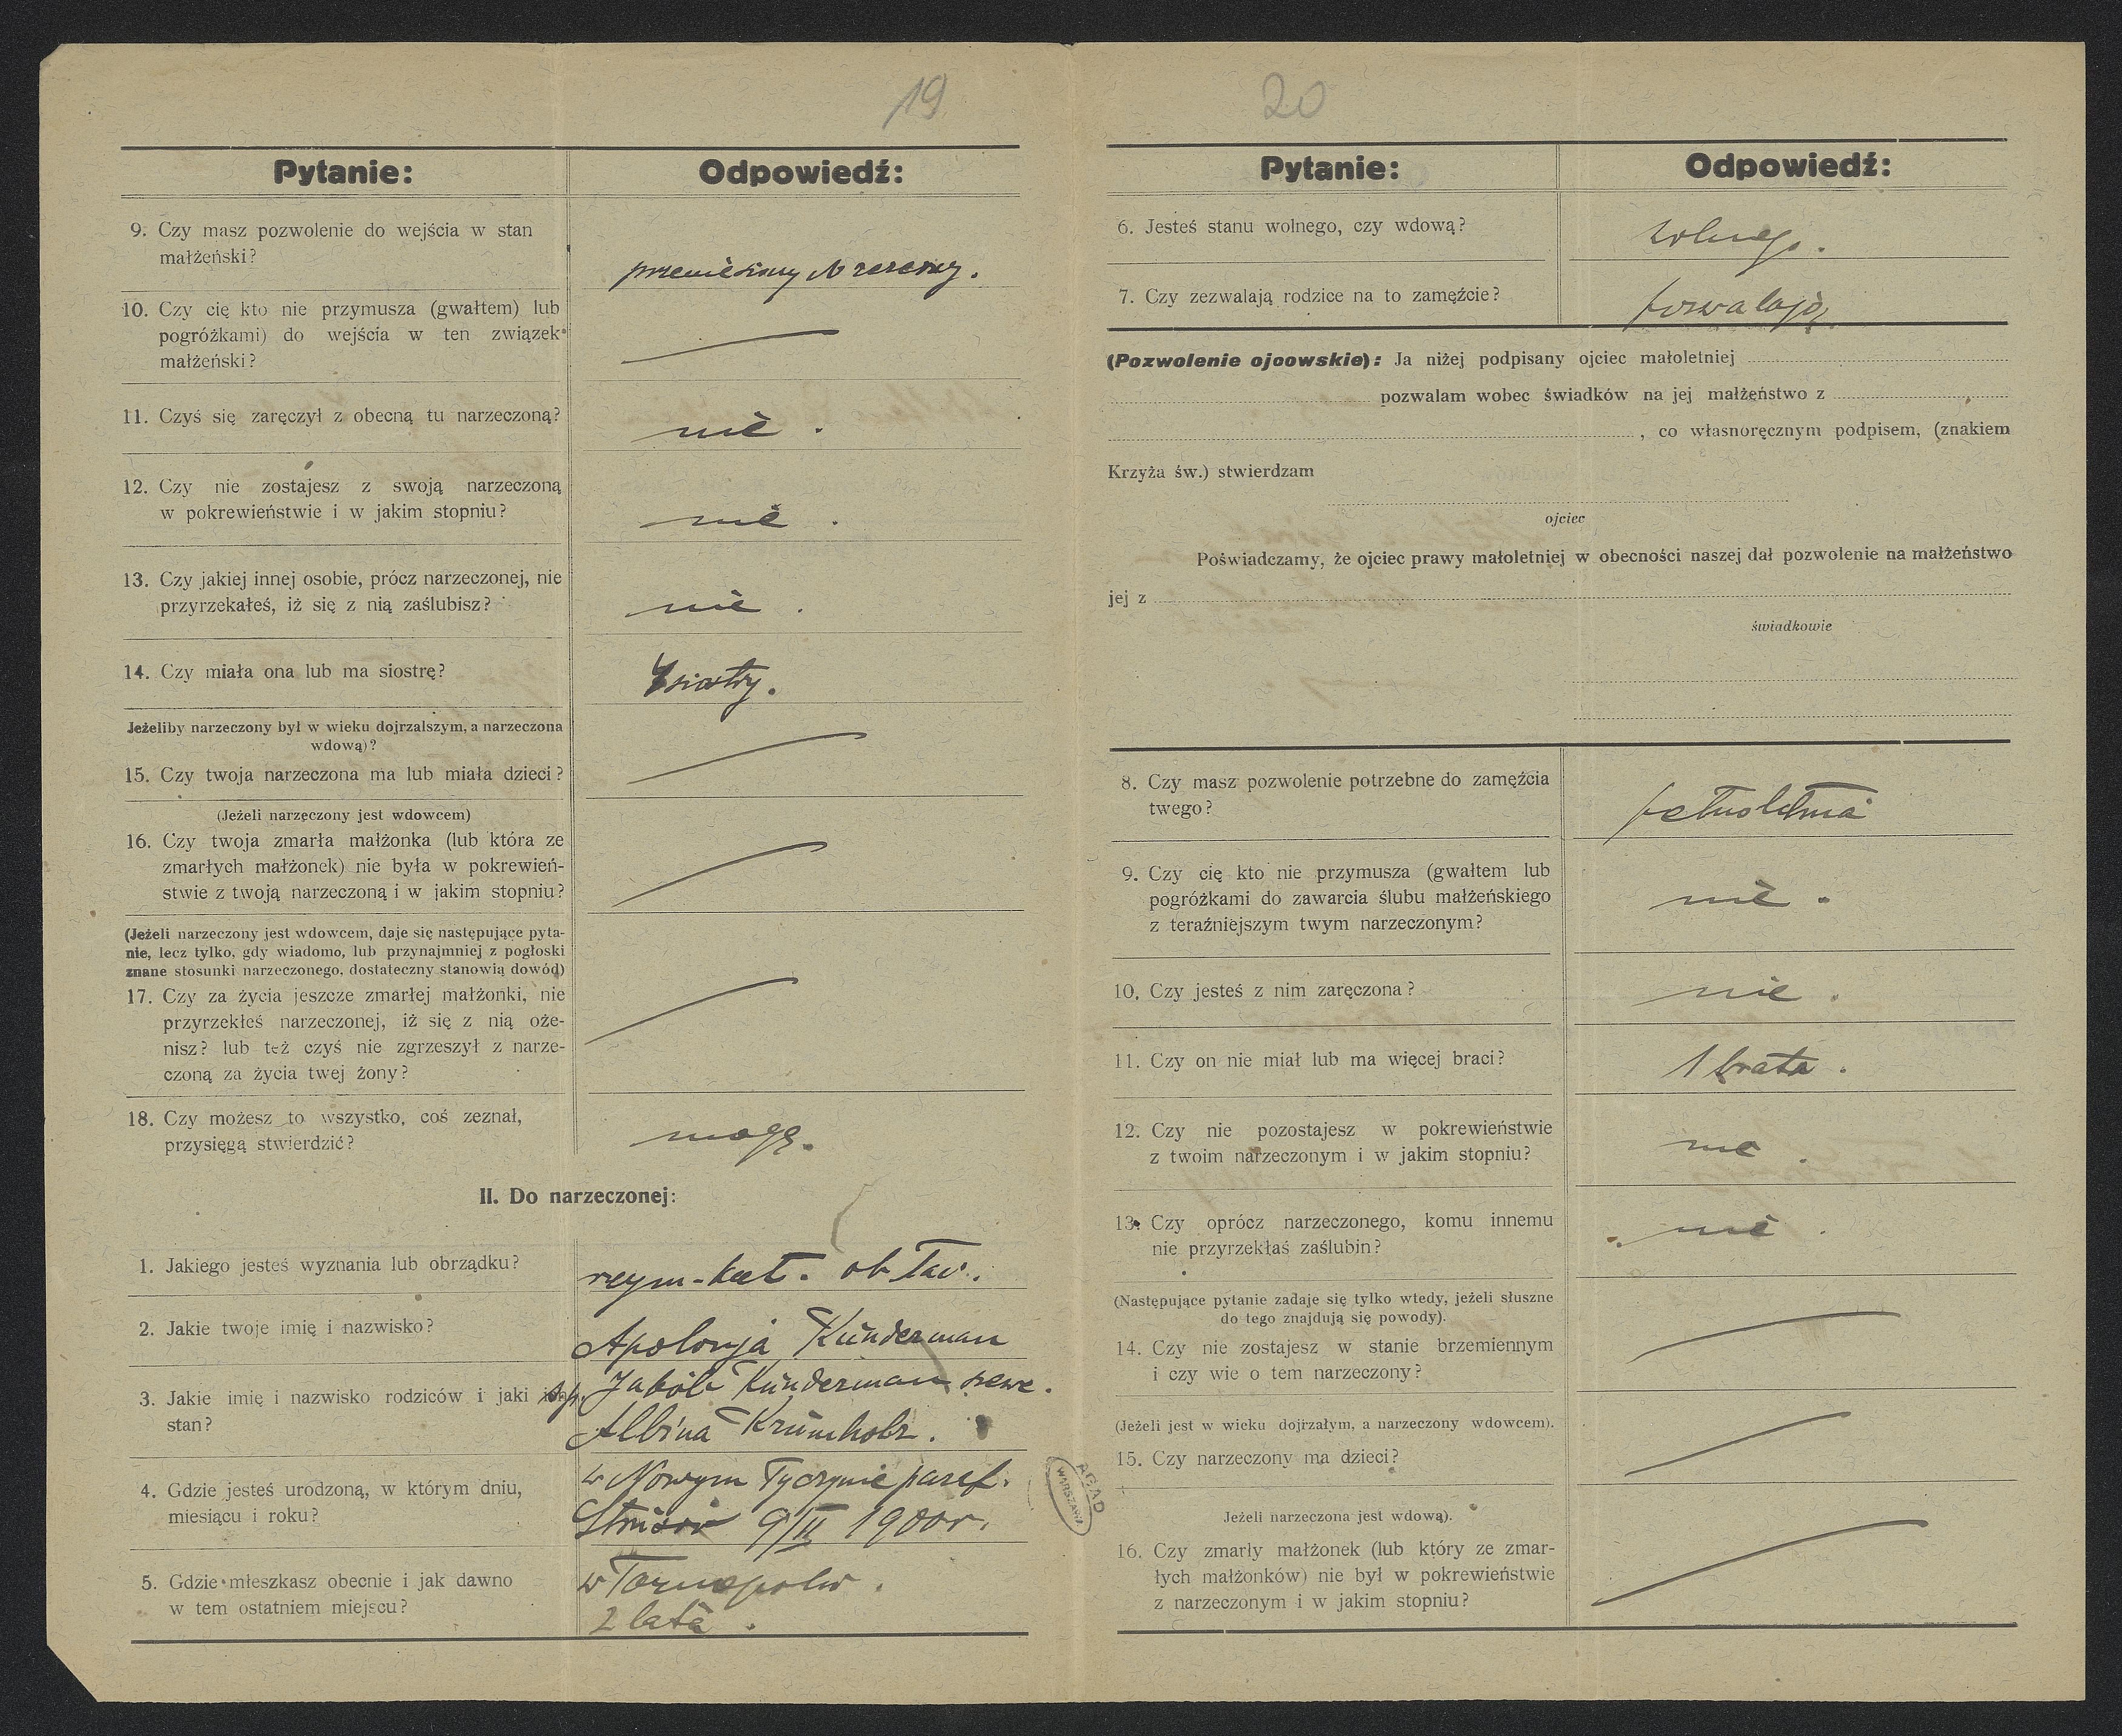 19
Pytanie:
Odpowiedź:
9. Czy masz pozwolenie do wejścia w stan
małżeński?
przeniesiony do rezerwy.
10. Czy cię kto nie przymusza (gwałtem) lub
pogróżkami) do wejścia w ten związek
małżeński?
11. Czyś się zaręczył z obecną tu narzeczoną?
nie.
12. Czy nie zostajesz z swoją narzeczoną
w pokrewieństwie i w jakim stopniu?
nie.
13. Czy jakiej innej osobie, prócz narzeczonej, nie
przyrzekałeś, iż się z nią zaślubisz?
nie.
14. Czy miała ona lub ma siostrę?
4 siostry.
Jeżeliby narzeczony był w wieku dojrzalszym, a narzeczona
wdową)?
15. Czy twoja narzeczona ma lub miała dzieci?
(Jeżeli narzeczony jest wdowcem)
16. Czy twoja zmarła małżonka (lub która ze
zmarłych małżonek) nie była w pokrewień-
stwie z twoją narzeczoną i w jakim stopniu?
(Jeżeli narzeczony jest wdowcem, daje się następujące pyta-
nie, lecz tylko, gdy wiadomo, lub przynajmniej z pogłoski
znane stosunki narzeczonego, dostateczny stanowią dowód)
17. Czy za życia jeszcze zmarłej małżonki, nie
przyrzekłeś narzeczonej, iż się z nią oże-
nisz? lub też czyś nie zgrzeszył z narze-
czoną za życia twej żony?
18. Czy możesz to wszystko, coś zeznał,
przysięgą stwierdzić?
mogę.
II. Do narzeczonej:
1. Jakiego jesteś wyznania lub obrządku?
rzym-kat. ob łac.
2. Jakie twoje imię i nazwisko?
Apolonja Künderman
3. Jakie imię i nazwisko rodziców i jaki ich
stan?
Jakób Künderman szewc.
Albina Krümholz.
4. Gdzie jesteś urodzoną, w którym dniu,
miesiącu i roku?
w Nowym Tyczynie paraf.
Strusów 9/II 1900 r.
5. Gdzie mieszkasz obecnie i jak dawno
w tem ostatniem miejscu?
w Tarnopolu.
2 lata.
AGAD
WARSZAWA
20
Pytanie:
Odpowiedź:
6. Jesteś stanu wolnego, czy wdową?
wolnego.
7. Czy zezwalają rodzice na to zamęźcie?
pozwalają.
(Pozwolenie ojcowskie): Ja niżej podpisany ojciec małoletniej
pozwalam wobec świadków na jej małżeństwo z
, co własnoręcznym podpisem, (znakiem
Krzyża św.) stwierdzam
ojciec
Poświadczamy, że ojciec prawy małoletniej w obecności naszej dał pozwolenie na małżeństwo
jej z
świadkowie
8. Czy masz pozwolenie potrzebne do zamęźcia
twego?
pełnoletnia
9. Czy cię kto nie przymusza (gwałtem lub
pogróżkami do zawarcia ślubu małżeńskiego
z teraźniejszym twym narzeczonym?
nie.
10. Czy jesteś z nim zaręczona?
nie.
11. Czy on nie miał lub ma więcej braci?
1 brata.
12. Czy nie pozostajesz w pokrewieństwie
z twoim narzeczonym i w jakim stopniu?
nie.
13. Czy oprócz narzeczonego, komu innemu
nie przyrzekłaś zaślubin?
nie.
(Następujące pytanie zadaje się tylko wtedy, jeżeli słuszne
do tego znajdują się powody).
14. Czy nie zostajesz w stanie brzemiennym
i czy wie o tem narzeczony?
(Jeżeli jest w wieku dojrzałym, a narzeczony wdowcem).
15. Czy narzeczony ma dzieci?
Jeżeli narzeczona jest wdową).
16. Czy zmarły małżonek (lub który ze zmar-
łych małżonków) nie był w pokrewieństwie
z narzeczonym i w jakim stopniu?